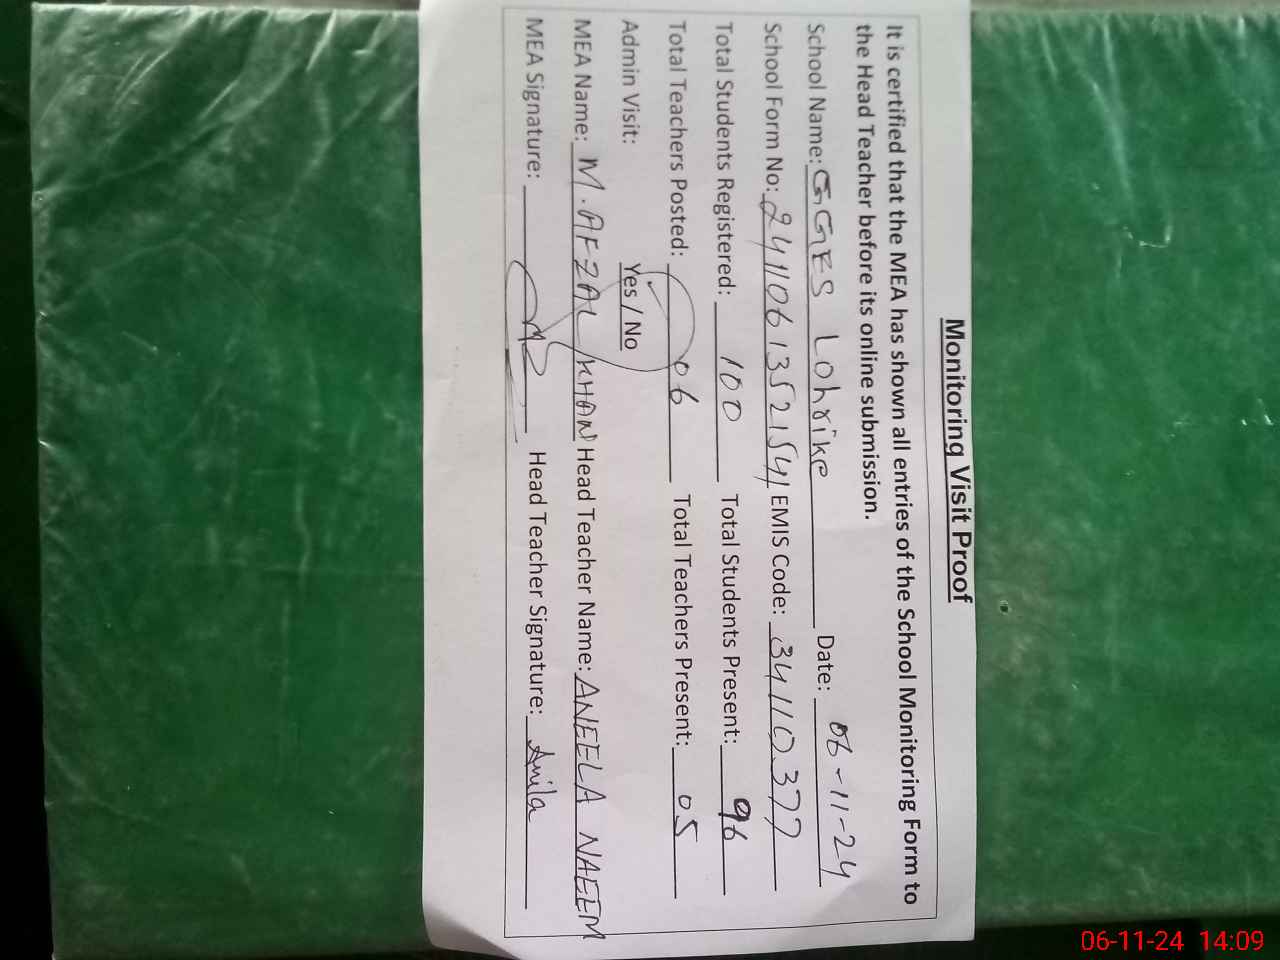 Monitoring Visit Proof
It is certified that the MEA has shown all entries of the School Monitoring Form to
the Head Teacher before its online submission.
School Name: GGES Lohrike Date: 06-11-24
School Form No: 24110613521541 EMIS Code: 34110377
Total Students Registered: 100 Total Students Present: 96
Total Teachers Posted: 06 Total Teachers Present: 05
Admin Visit: Yes / No
MEA Name: M. AFZAL KHAN Head Teacher Name: ANEELA NAEEM
MEA Signature: Head Teacher Signature: Anila
06-11-24 14:09